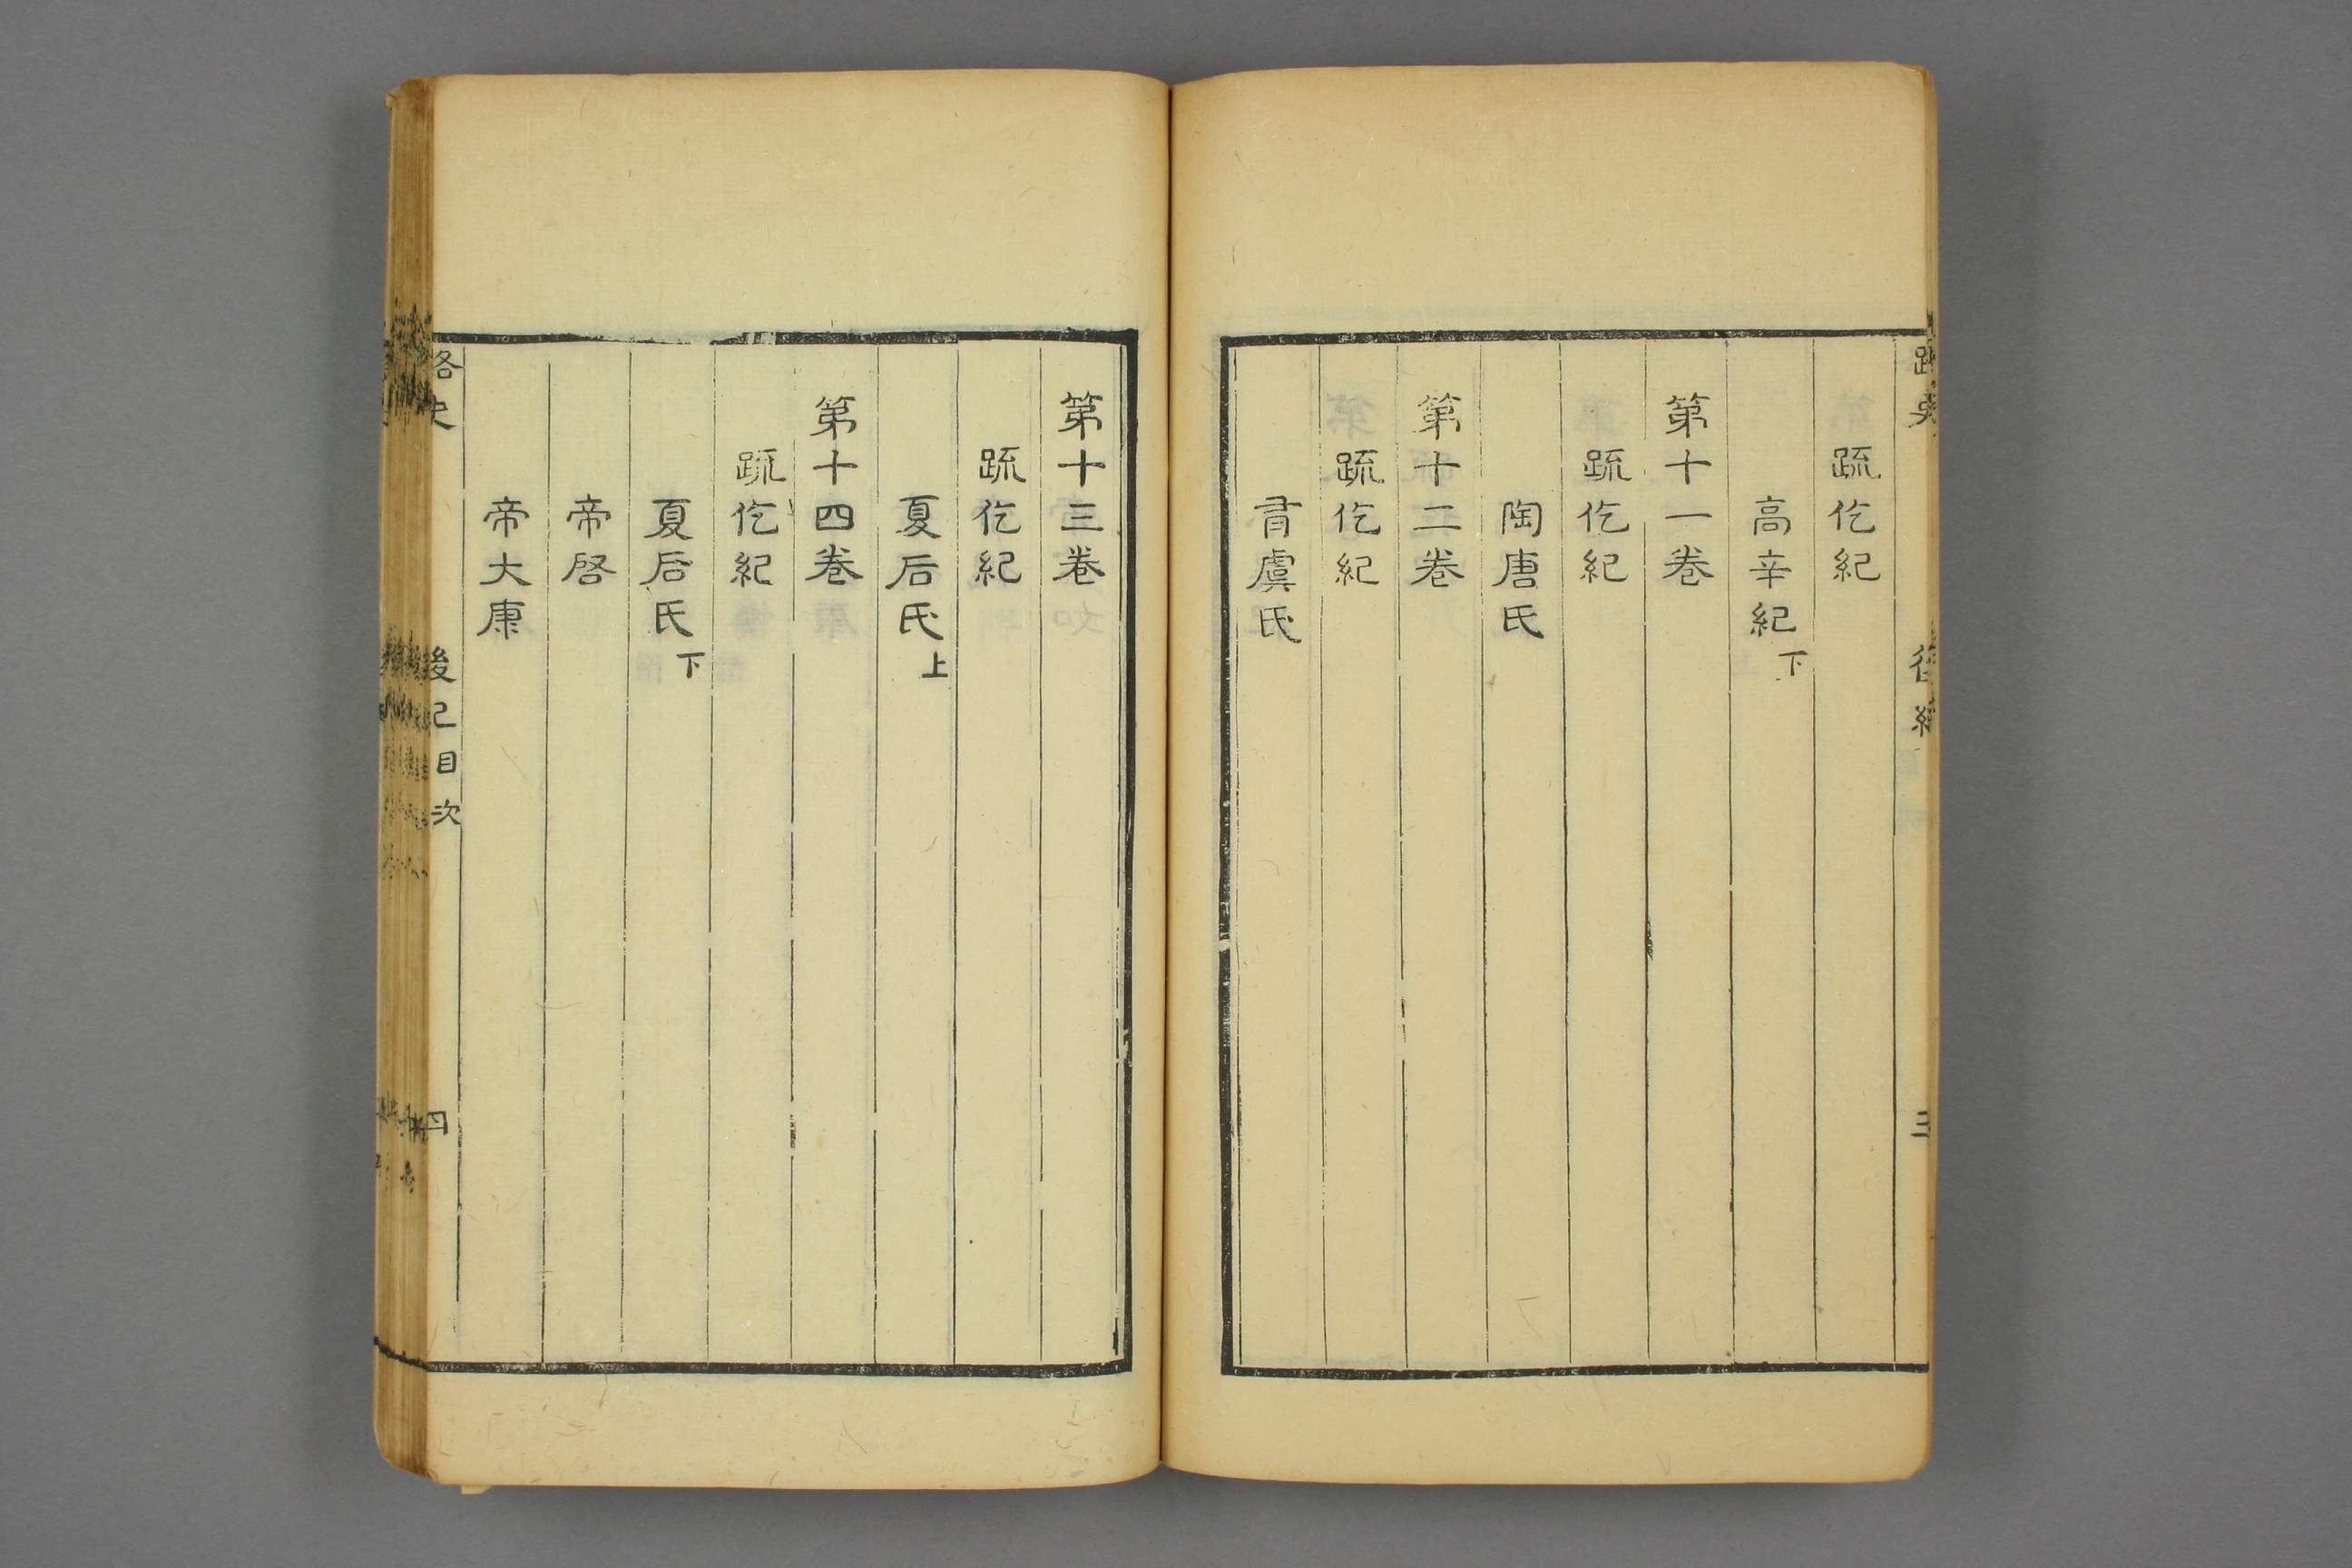 疏仡紀
高辛紀下
第十一卷
疏仡紀
陶唐氏
第十二卷
疏仡紀
有虞氏
第十三卷
疏仡紀
夏后氏上
第十四卷
疏仡紀
夏后氏下
帝啓
帝大康
路史
後紀目次
四